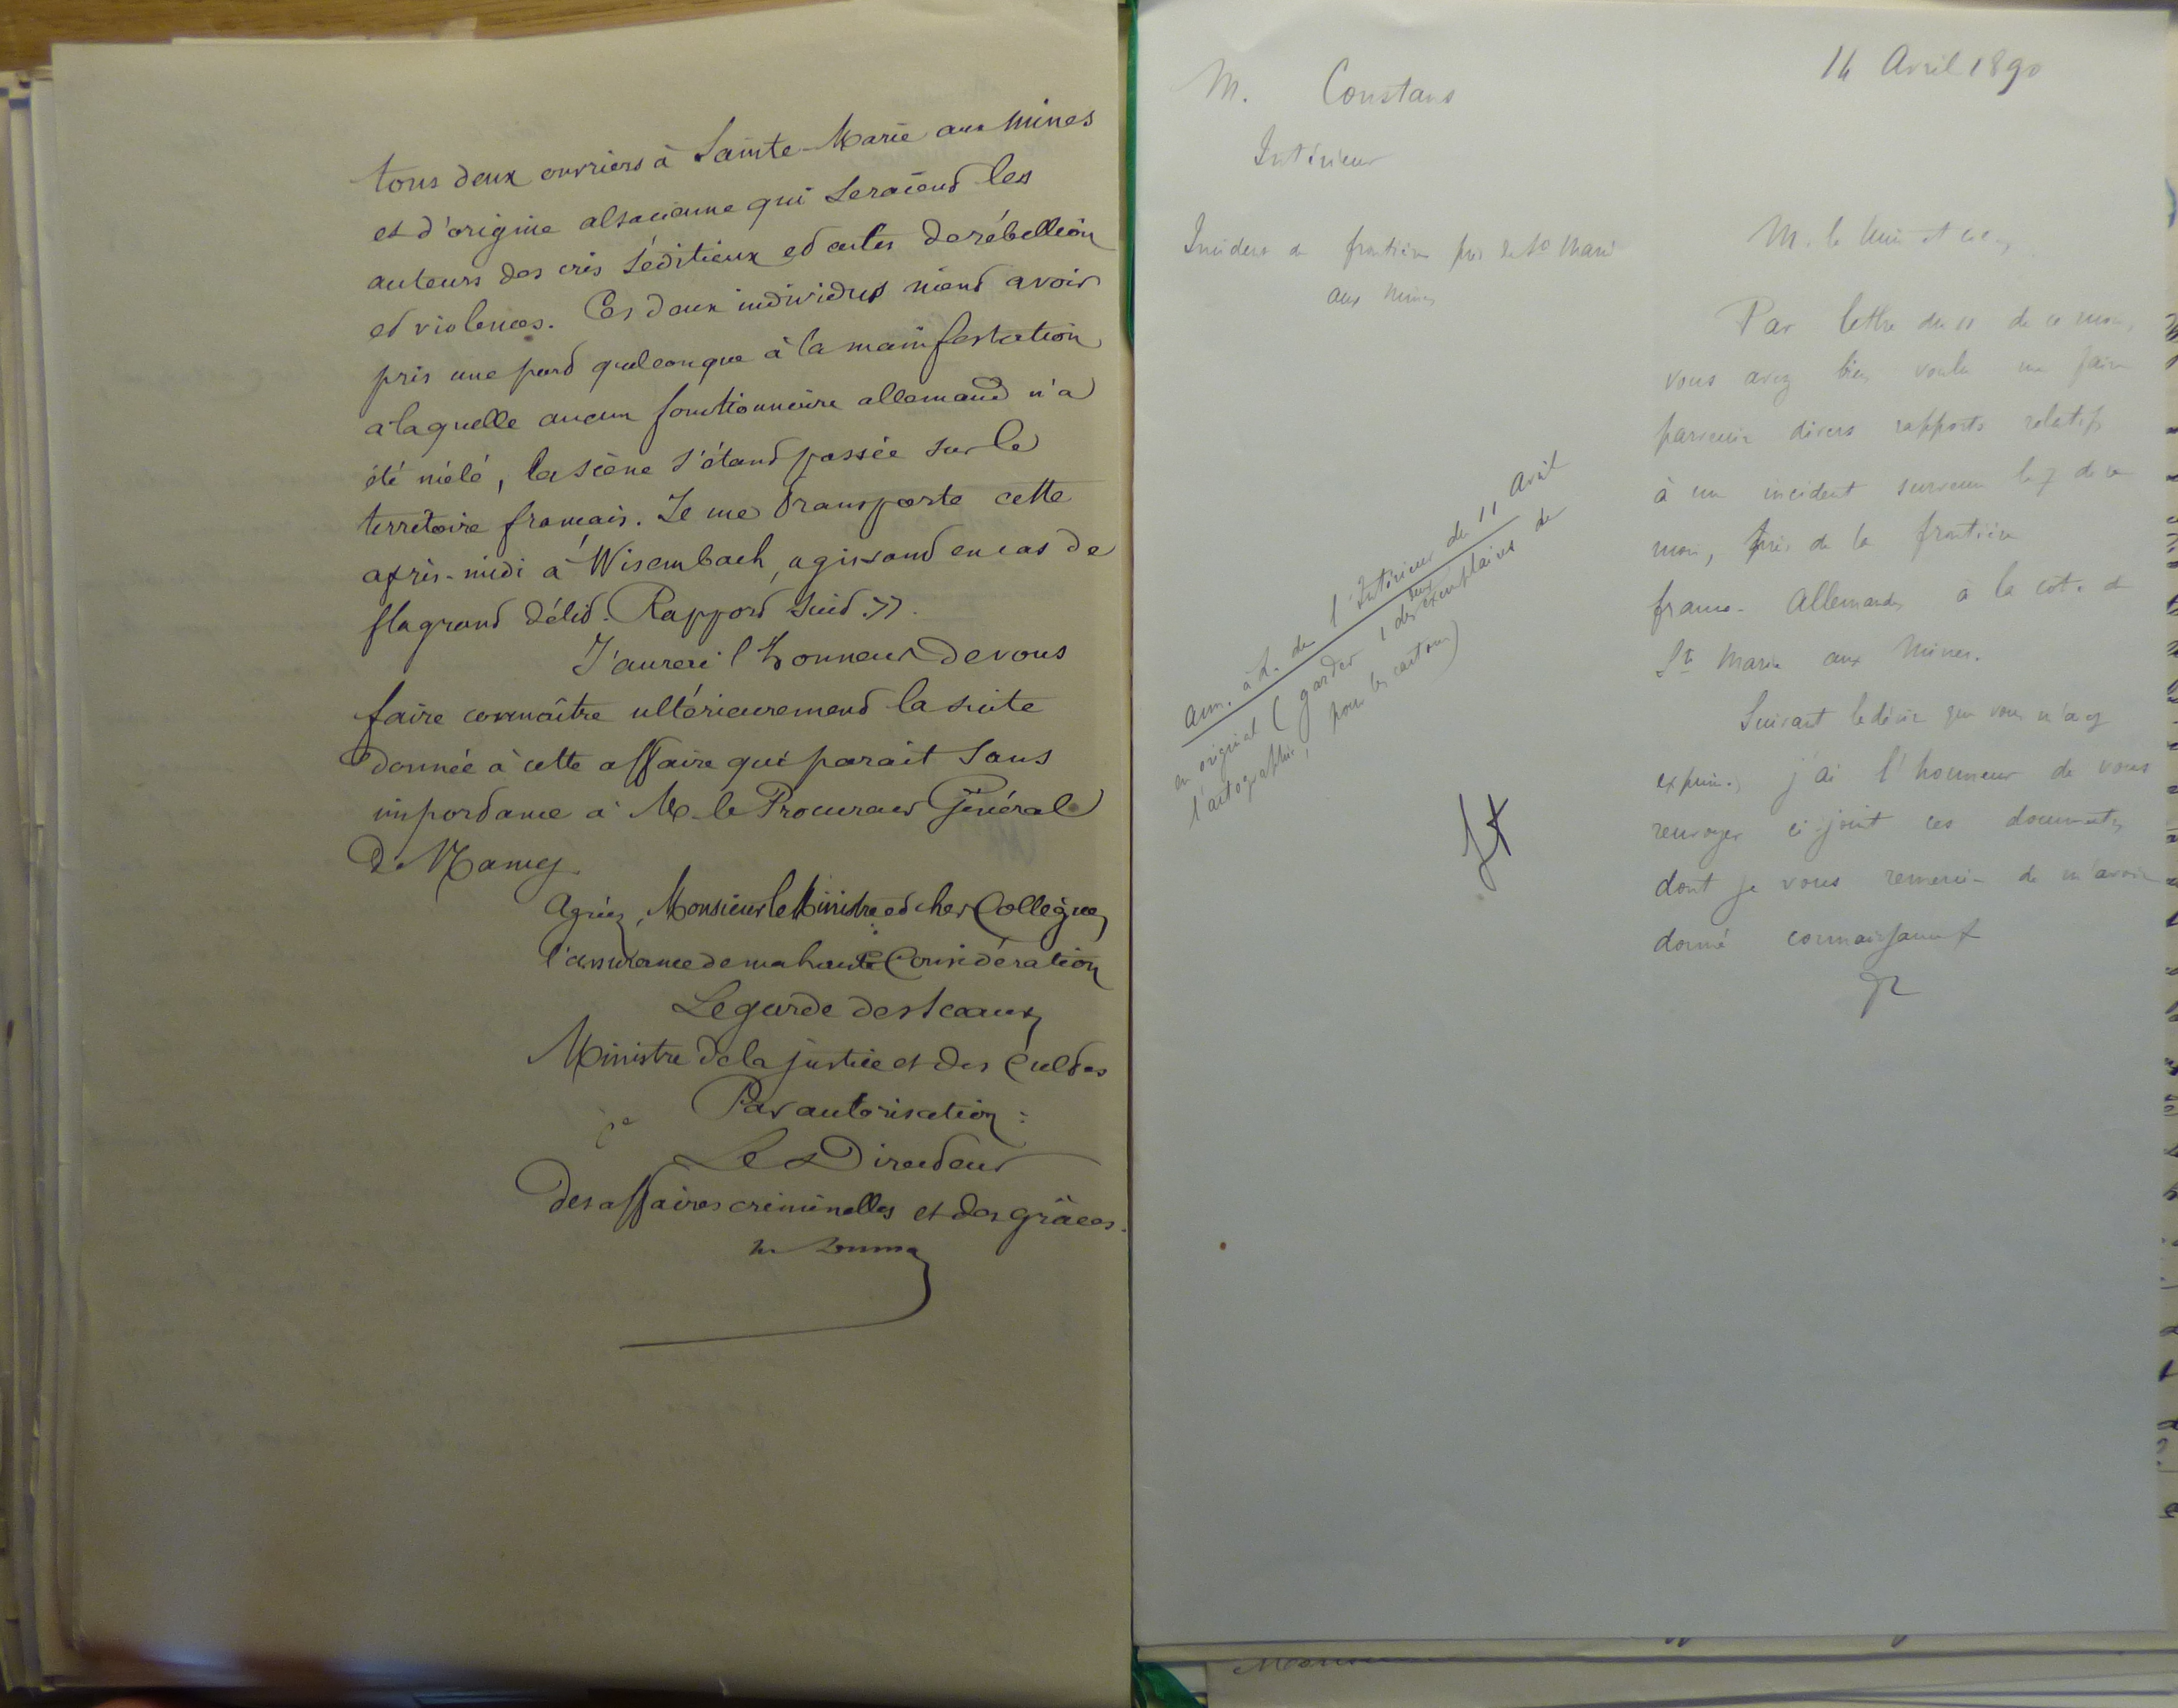 tous deux ouvriers à Sainte-Marie aux Mines
et d'origine alsacienne qui seraient les
auteurs des cris séditieux et actes de rébellion
et violences. Ces deux individus nient avoir
pris une part quelconque à la manifestation
a laquelle aucun fonctionnaire allemand n'a
été mêlé, la scène s'étant passée sur le
territoire français. Je me transporte cette
après-midi à Wisembach, agissant en cas de
flagrant délit. Rapport suit. ».
J'aurai l'honneur de vous
faire connaître ultérieurement la suite
donnée à cette affaire qui parait sans
importance à M. le Procureur Général
de Nancy
Agréez, Monsieur le Ministre et cher Collègue,
l'assurance de ma haute Considération
Le garde des sceaux,
Ministre de la justice et des Cultes
Par autorisation :
Le Directeur
des affaires criminelles et des grâces.
14 Avril 1890
M. Constans
Intérieur
Incident de frontière près de Ste Marie
aux Mines
M. le Min et
Par lettre du 11 de ce mois,
vous avez bien voulu me faire
parvenir divers rapports relatifs
à un incident survenu le 7 de ce
mois, près de la frontière
franco-Allemande, a la cote de
Ste Marie aux Mines.
Suivant le désir que vous m'avez
exprimé, j'ai l'honneur de vous
renvoyer ci-joint ces documents,
dont je vous remercie de m'avoir
donné connaissance
Ann. à L. de l'Intérieur du 11 Avril
en original (garder 1 des exemplaires de
l'autographie, pour les cartons)